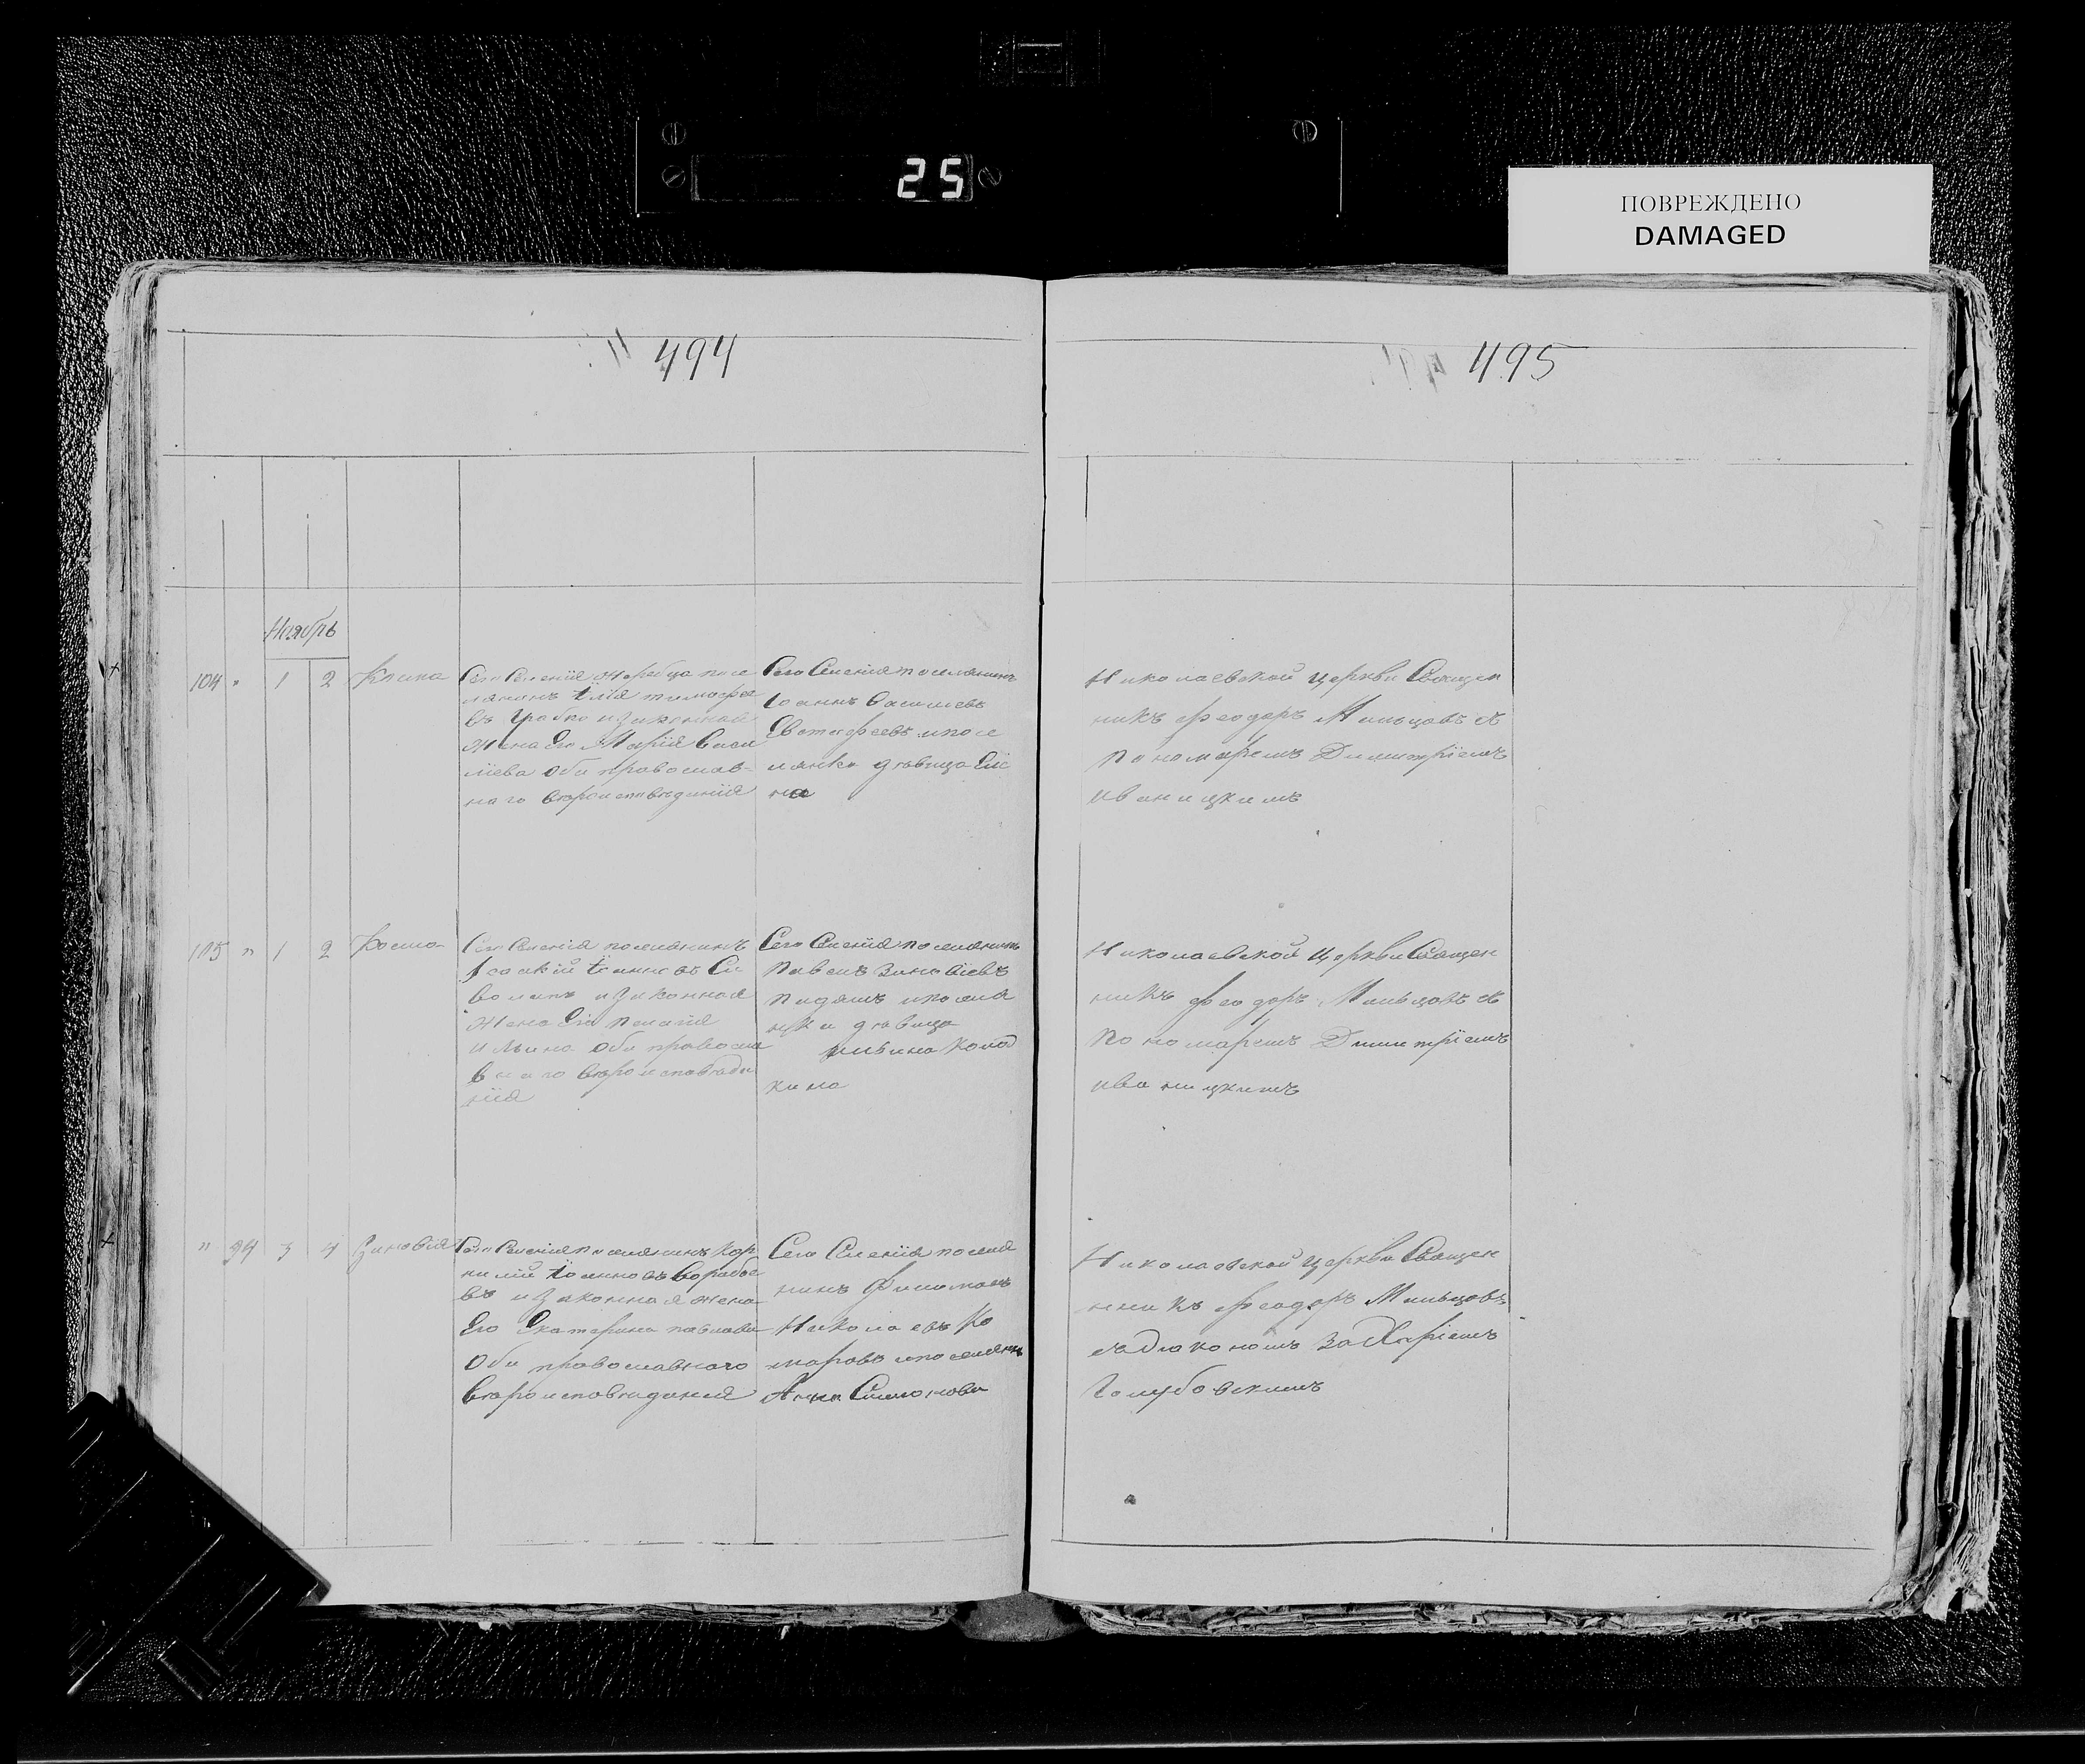 25
ПОВРЕЖДЕНО
DAMAGED
494
495
Ноябрь
104 " 1 2
Сего Селенія посе
лянинъ Илія тимофѣе
въ Грабко и законная
жена Его Марія Васи
ліева оби православ-
наго вѣроисповѣданія
Сего Селенія поселянинъ
Іоаннъ Василіевъ
Евстафіевъ и посе
лянка дѣвица Еле
на
Николаевской церкви Священ
никъ Феодоръ Мильцовъ съ
пономаремъ Димитріемъ
иваницкимъ
105 " 1 2 Косма
Сего Селенія поселянинъ
Іоанновъ
и законная
жена Его пелагія
ильина оби правосла
внаго вѣроисповѣда
нія
Сего Селенія поселянинъ
Павелъ Зиновіевъ
и поселя
нка дѣвица
кина
Николаевской церкви Священ
никъ Феодоръ Мильцовъ съ
пономаремъ Димитріемъ
иваницкимъ
" 94 3 4 Зиновія
Сего Селенія поселянинъ Кор
нилій Іоанновъ Воробье
въ и законная жена
Его Екатерина павлова
оби православнаго
вѣроисповѣданія
Сего Селенія поселя
нинъ Филимонъ
Николаевъ Ко
маровъ и поселянка
Анна Симонова
Николаевской церкви Священ
никъ Феодоръ Мильцовъ
съ Дьякономъ Захаріемъ
Голубовскимъ